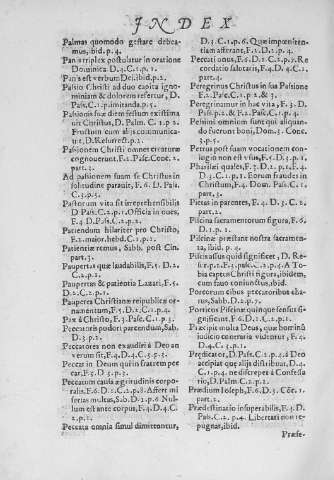 INDEX
Palmas quomodo gestare debea-
mus, ibid. p. 4.
Panis triplex postulatur in oratione
Dominica D. 4. C. 1. p. 1.
Pan is est verbum Dei. ibid. p. 2.
Passio Christi ad duo capita igno-
miniam & dolorem refertur, D.
Paſs. C. 1. p. limitanda. p. 5.
Passionis suæ diem festum existima
uit Christus, D. Palm. C. 1. p. 2.
Fructum eum alijs communica-
uit, D. Resurrect. p. 2.
Passionem Christi omnes creaturæ
cognouerunt. F. 2. Paſc. Conc. 2.
part. 3.
Ad passionem suam se Christus in
solitudine parauit, F. 6. D. Paſs.
C. 3. p. 3.
Pastorum vita sit irreprehensibilis
D Paſc. C. 2. p. 1. Officia in oues,
F. 4. D. Paſs. C. 2. p. 1.
Patiendum hilariter pro Christo,
F. 2. maior. hebd. C. 1. p. 1.
Patientiæ remus, Sabb. post Cin.
part. 3.
Paupertas quæ laudabilis, F. 5. D. 2.
C. 2. p. 1.
Paupertas & patientia Lazari, F. 5.
D. 2. C. 2. p. 1.
Pauperes Christianæ reipublicæ or-
namentum, F. 5. D. 2. C. 1. p. 4.
Pax à Christo, F. 3. Paſc. C. 1. p. 3.
Peccantis pudori parcendum, Sab.
D. 3. p. 3.
Peccatores non exaudiri à Deo an
verum sit, F. 4. D. 4. C. 3. p. 3.
Peccat in Deum qui in fratrem pec
cat, F. 3. D 3. p. 3.
Peccatum causa ægritudinis corpo-
ralis, F. 6. D. 1. C. 2. p. 8. Affert mi
serias multas, Sab. D. 2. p. 6 Nul-
lum est ante corpus, F. 4. D. 4. C.
2. p. 1.
Peccata omnia simul dimittuntur,
D. 3. C. 1. p. 6. Quæ impœniten-
tiam asserant, F. 2. D. 1. p. 4.
Peccati onus, F. 6. D. 1. C. 2. p. 2. Re
cordatio salutaris, F. 4. D. 4. C. 1.
part. 4.
Peregrinus Christus in sua Passione
F. 2. Paſc. C. 1. p. 2. & 3.
Peregrinamur in hac vita, F. 3. D.
Paſs. p. 2. & F. 2. Paſc. C. 1. p. 4.
Pessimi omnium sunt qui aliquan-
do fuerunt boni, Dom. 3. Conc.
3. p. 5.
Petrus post suam vocationem con-
iugio non est vsus, F. 5. D. 3. p. 1.
Pharisei quales, F. 3. D. 2. p. 1. &
D. 4. C. 3. p. 1. Eorum fraudes in
Christum, F. 4. Dom. Paſs. C. 1.
part. 3.
Pietas in parentes, F. 4. D. 3. C. 2.
part. 2.
Piscina sacramentorum figura, F. 6.
D. 1. p. 1.
Piscinæ præstant nostra sacramen-
ta, ibid. p. 4.
Piscis assus quid significet, D. Re-
sur. p. 1. F. 3. paſc. C. 2. p. 4. A To-
bia captus Christi figura, ibidem,
cum fauo coniunctus, ibid.
Porcorum cibus peccatoribus cha-
rus, Sabb. D. 2. p. 7.
Porticus Piscinæ quinque sensus si-
gnificent. F. 6. D. 1. C. 2. p. 1.
Præcipit multa Deus, quæ hominũ
iudicio contraria videntur, F. 4.
D. 4. C. 3. p. 1.
Prædicator, D. Paſs. C. 2. p. 4. à Deo
accipiat quæ alijs distribuat, D. 4.
C. 1. p. 4. ne discrepet à Confessa
rio, D. Palm. C. 2. p. 2.
Prædium Ioseph, F. 6. D. 3. Cõc. 1.
part. 2.
Prædestinatio insuperabilis, F. 3. D.
Paſs. C. 2. p. 4. Libertati non re-
pugnat, ibid.
Præse-